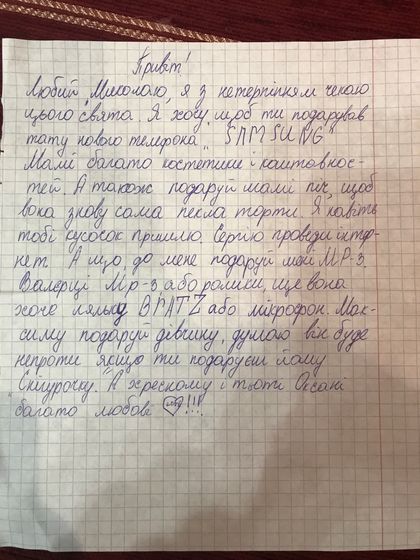 Привіт!
Любий, Миколаю, я з нетерпінням чекаю
цього свята. Я хочу щоб ти подарував
тату нового телефона „SAMSUNG"
Мамі багато костетики і коштовнос-
тей. А також подаруй мамі піч, щоб
вона знову сама пекла торти. Я навіть
тобі кусочок пришлю. Сергію проведи інтер-
нет А що до мене подаруй мені МР-3.
Валерці Мр-3 або ролики, ще вона
хоче ляльку BRATZ або мікрофон. Мак-
симу подаруй дівчину, думаю він буде
непроти якщо ти подаруєш йому
„Снігурочку." А хресному і тьоті Оксані
багато любові !!!